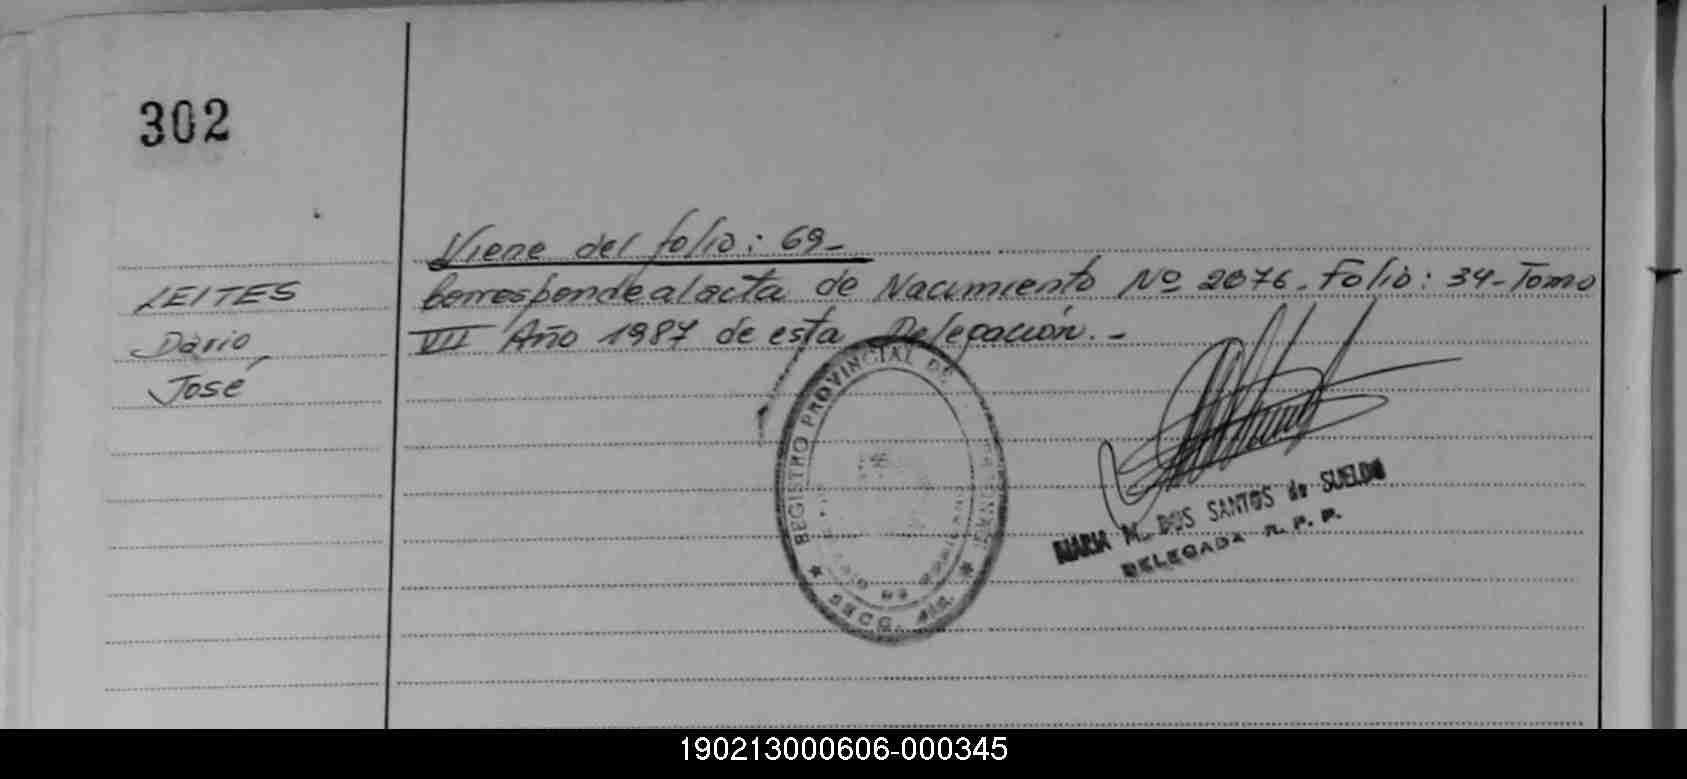 302
Viene del folio: 69-
LEITES
Corresponde al acta de Nacimiento Nº 2076. Folio: 34-Tomo
Darío
VII Año 1987 de esta Delegación.-
José
REGISTRO PROVINCIAL DE
SECC.
MARIA M. DOS SANTOS de SUELDO
DELEGADA R. P. P.
190213000606-000345